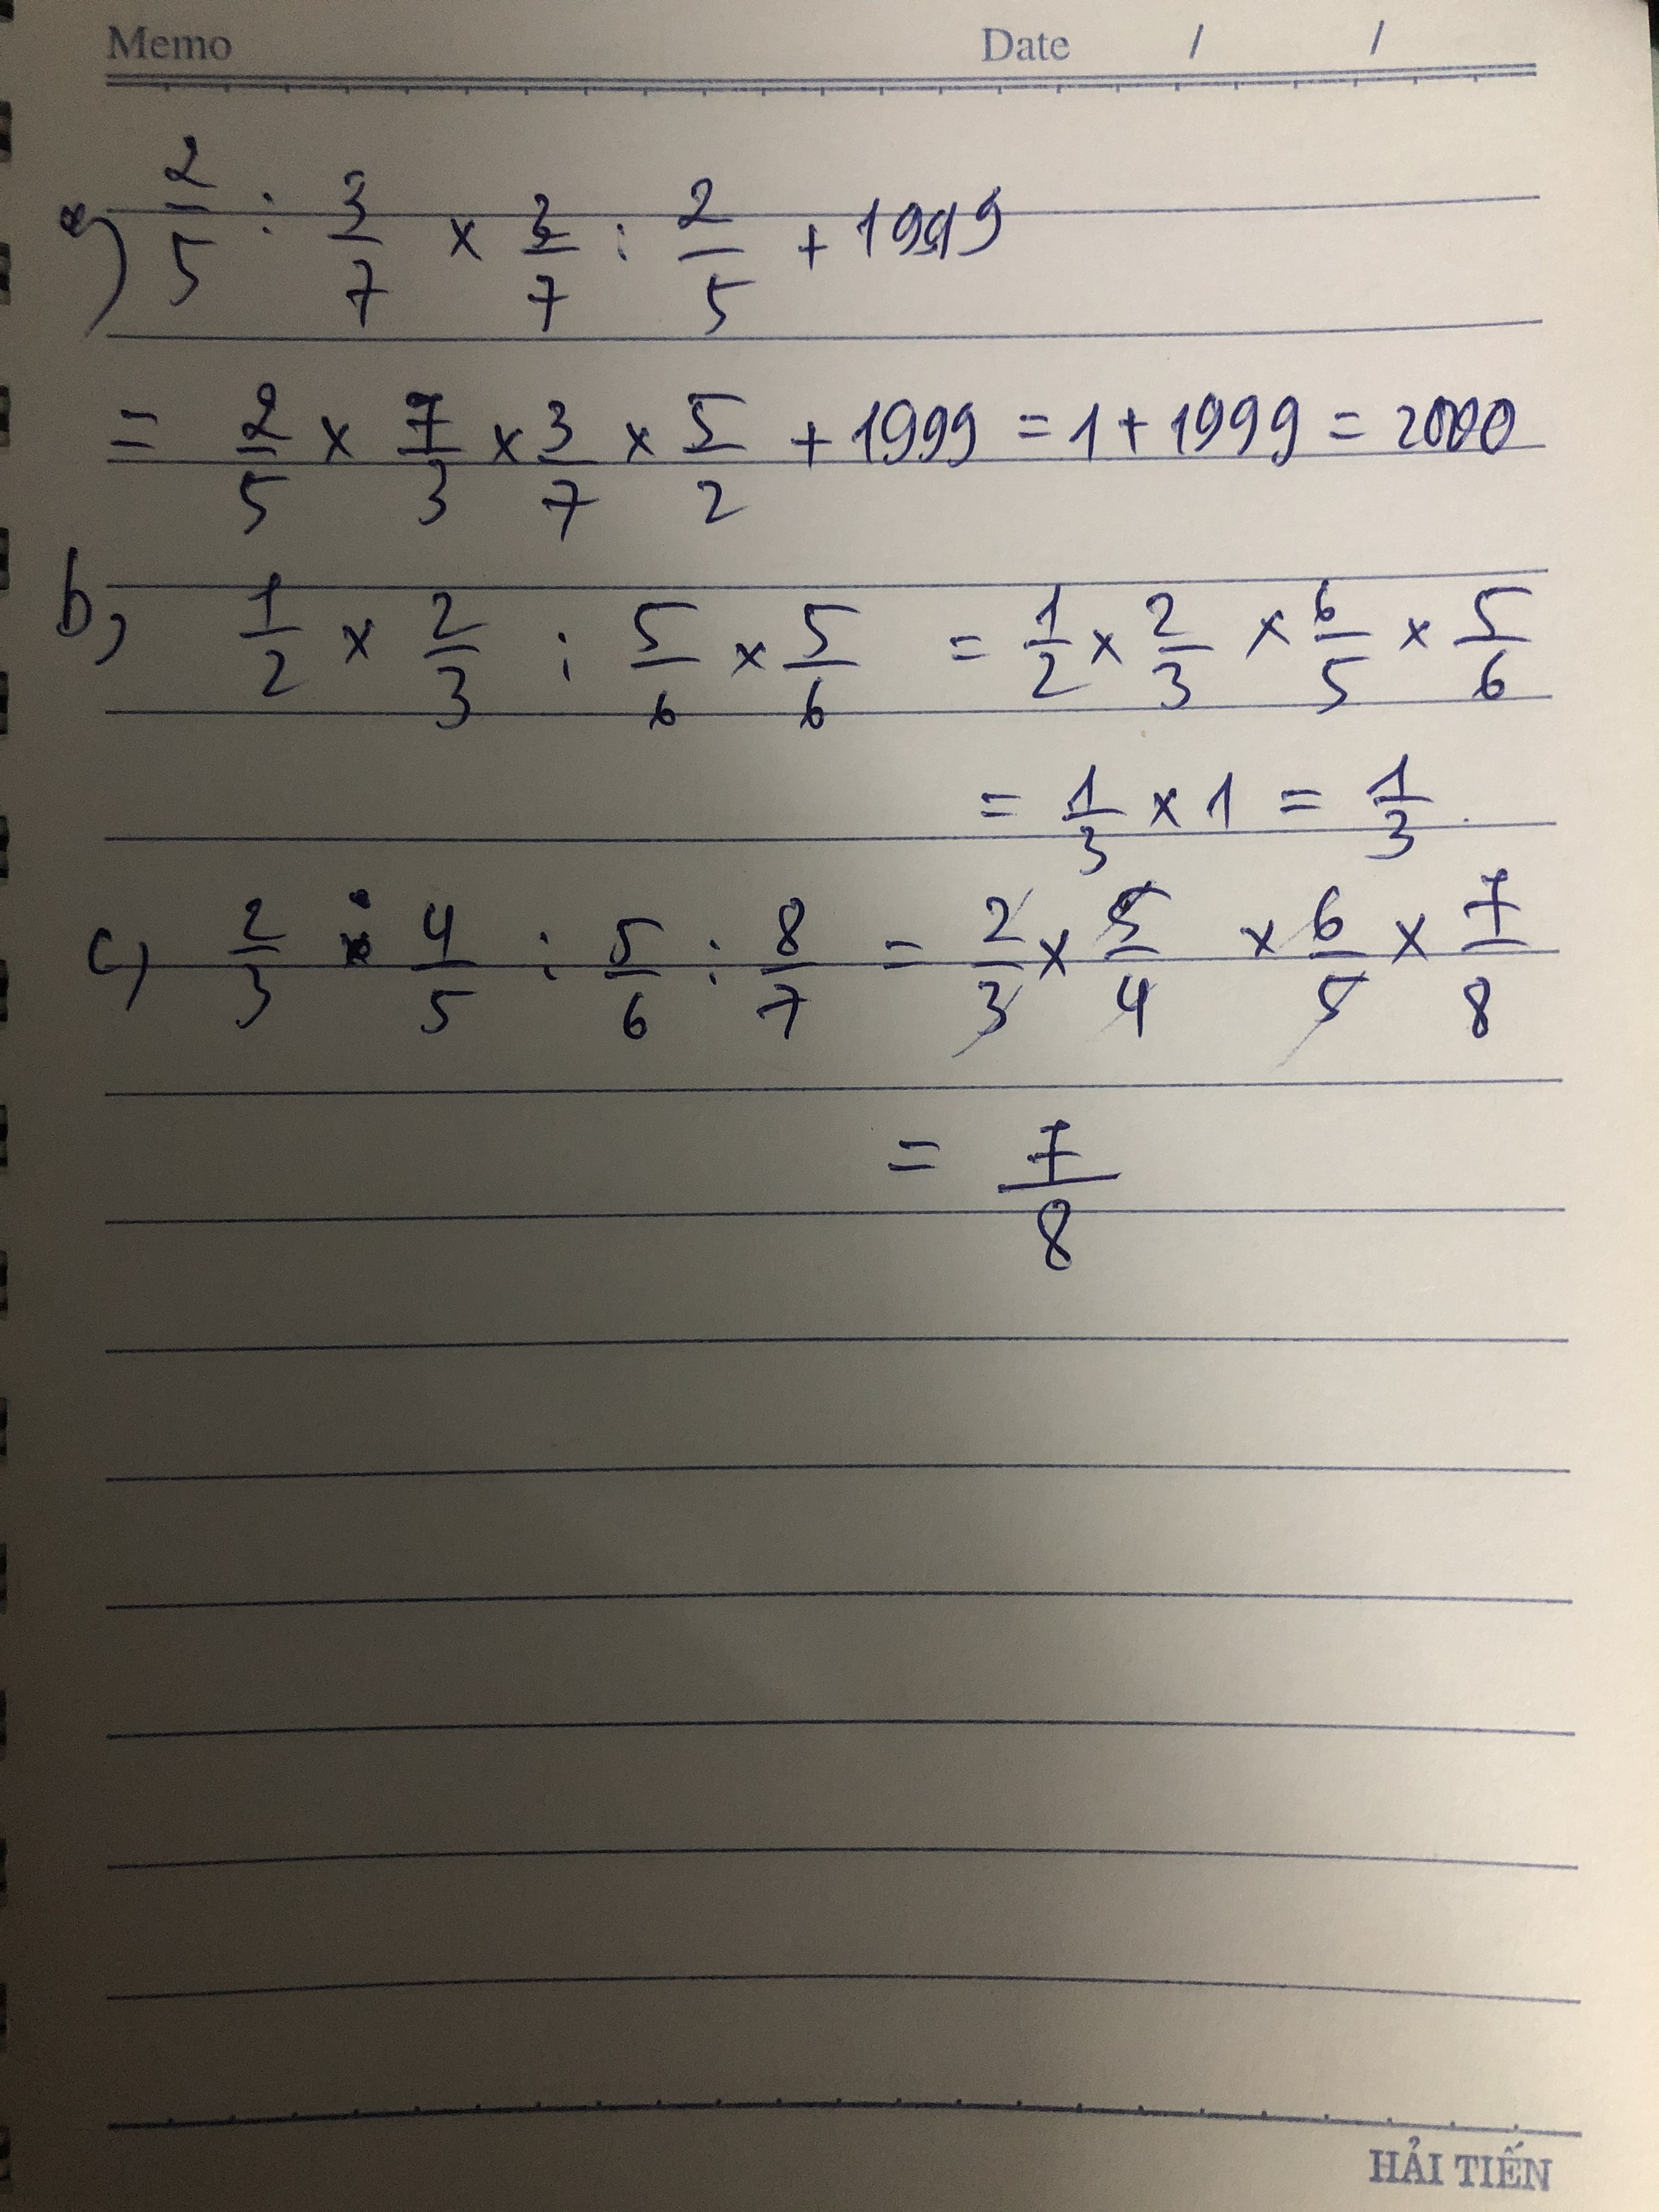 Memo Date / /
a) 2/5 : 3/7 × 3/7 : 2/5 + 1999
= 2/5 × 7/3 × 3/7 × 5/2 + 1999 = 1 + 1999 = 2000
b, 1/2 × 2/3 : 5/6 × 5/6 = 1/2 × 2/3 × 6/5 × 5/6
= 1/3 × 1 = 1/3.
c) 2/3 : 4/5 : 5/6 : 8/7 = 2/3 × 5/4 × 6/5 × 7/8
= 7/8
HẢI TIẾN